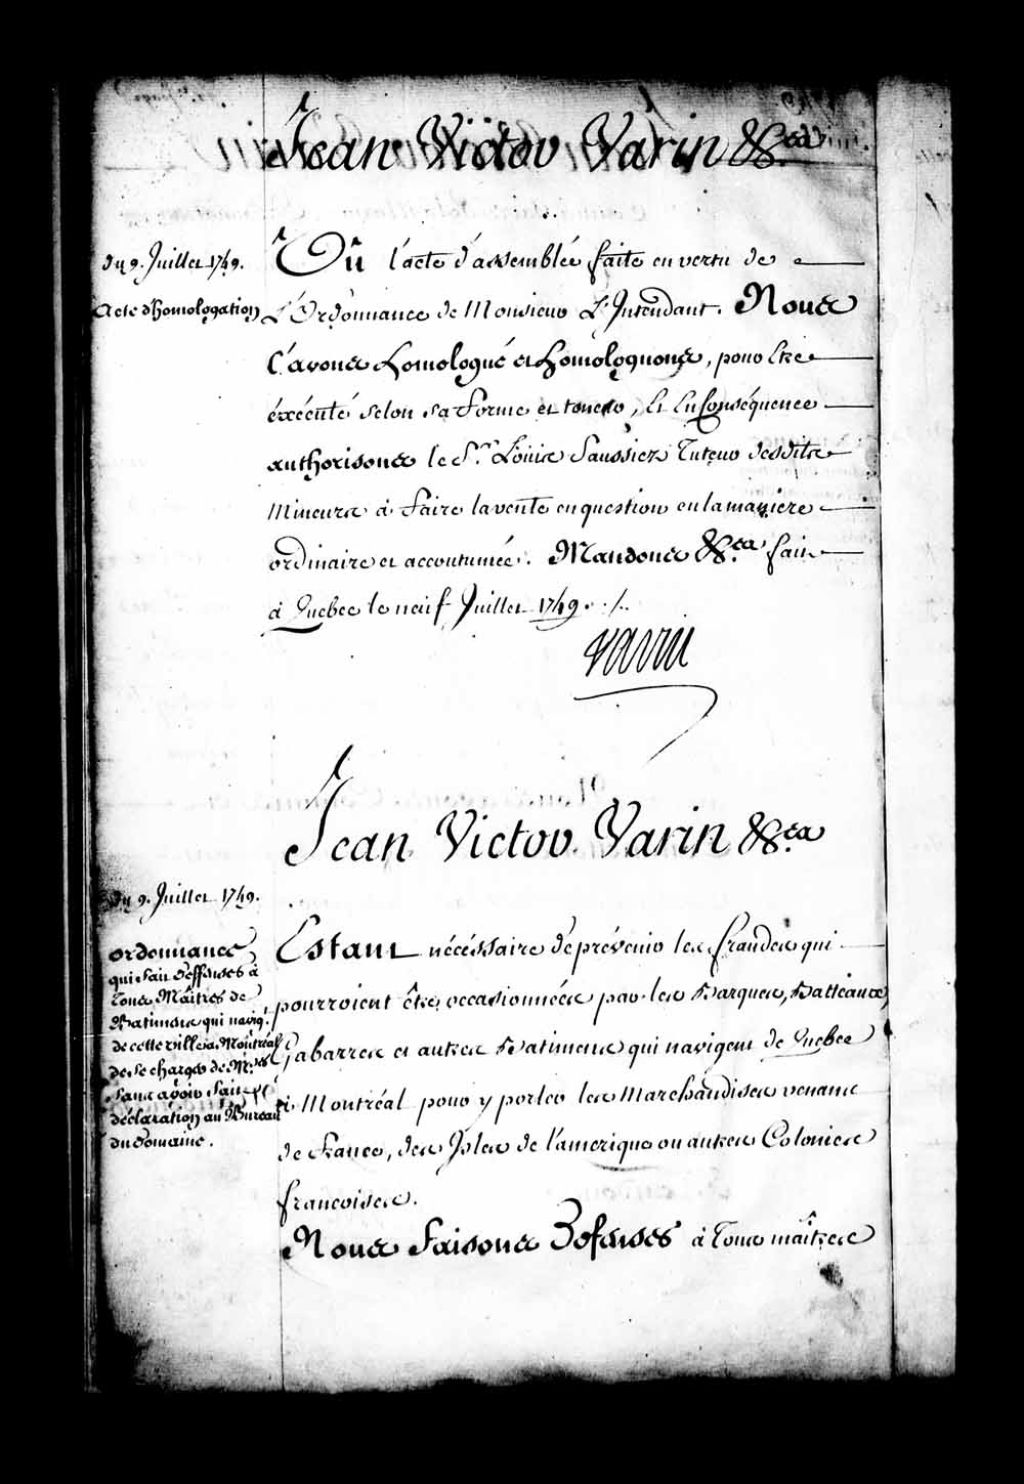 Jean Victor Varin &c.ª
du 9. Juillet 1749.
Acte d'homologation
Vû l'acte d'assemblée faite en vertu de
L'Ordonnance de Monsieur L'Intendant. Nous
l'avons homologué et homologuons, pour être
éxécuté selon sa forme et teneur, Et En Conséquence
authorisons le S.r Loüis Saussier Tuteur desdits
Mineurs à faire la vente en question en la maniere
ordinaire et accoutumée. Mandons &c.ª fait
à Quebec le neuf Juillet 1749 ./.
Varin
Jean Victor Varin &c.ª
du 9. Juillet 1749.
ordonnance
qui fait deffenses à
tous Maîtres de
Batimens qui navig.t
de cette ville à Montréal
de se charger de M.ses
sans avoir fait
déclaration au Bureau
du Domaine.
Estant nécéssaire de prévenir les fraudes qui
pourroient être occasionnées par les Barques, Batteaux,
Gabarres et autres Batimens qui navigent de Quebec
à Montréal pour y porter les Marchandises venant
de France, des Isles de l'amerique ou autres Colonies
francoises.
Nous Faisons Defenses à Tous maîtres